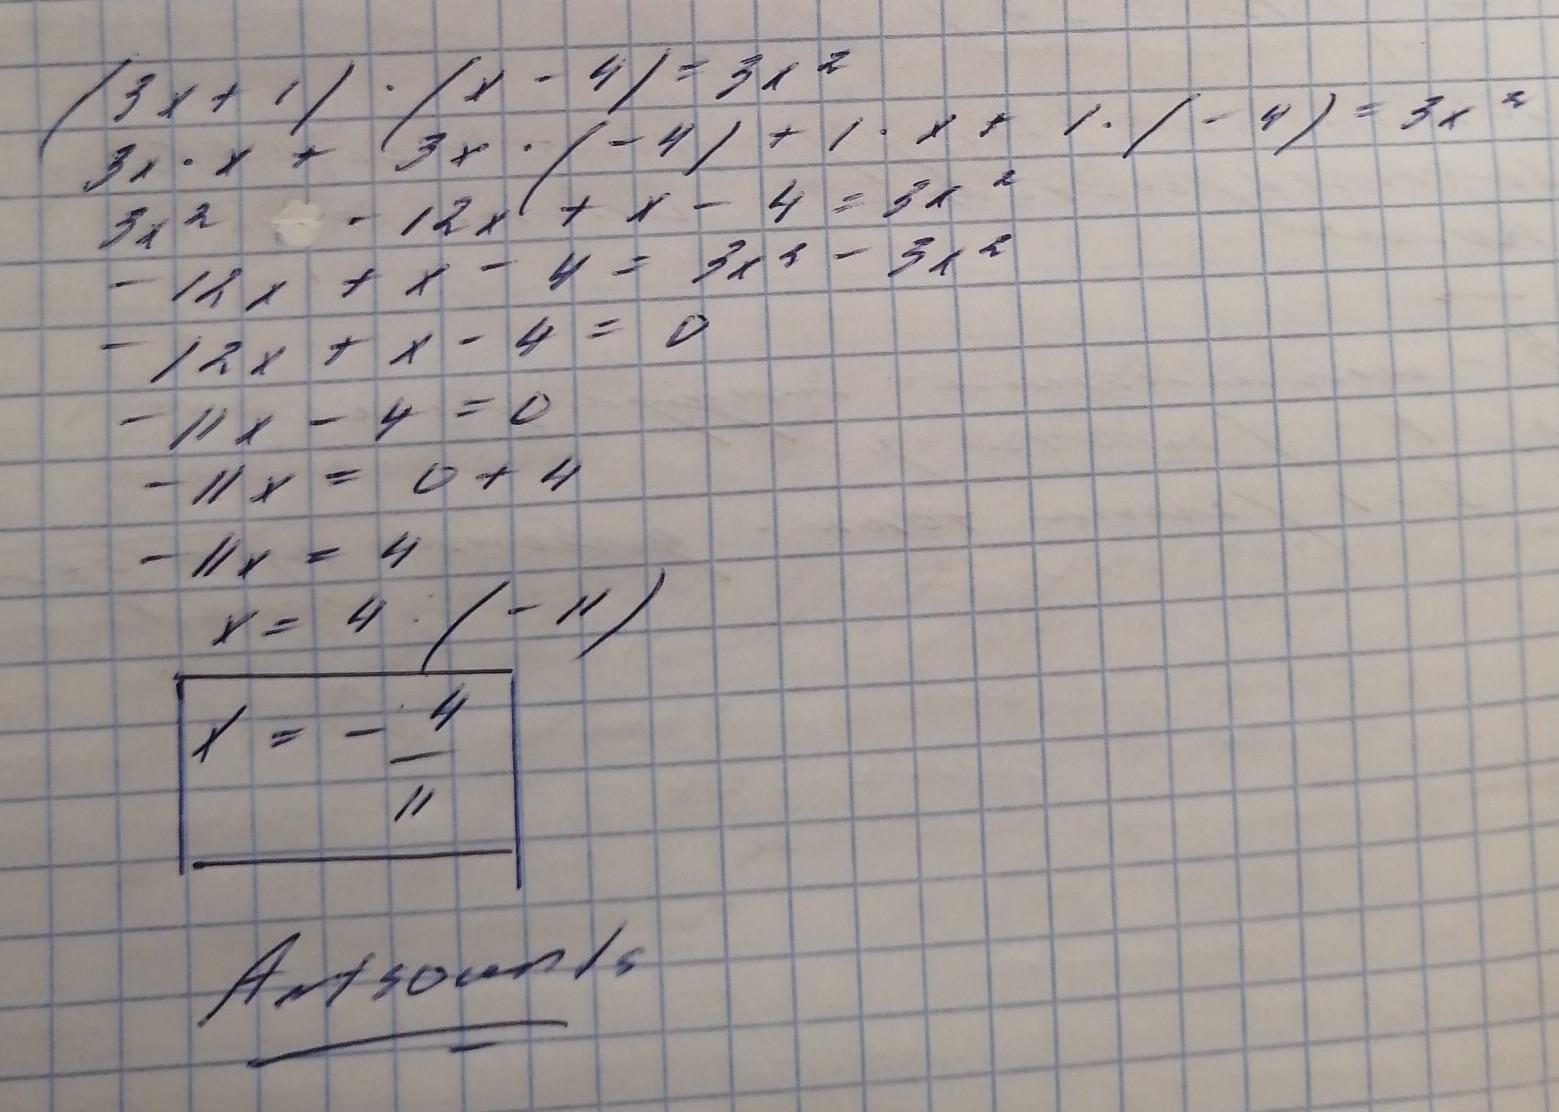 (3x + 1) · (x - 4) = 3x²
3x · x + 3x · (-4) + 1 · x + 1 · (-4) = 3x²
3x² - 12x + x - 4 = 3x²
- 12x + x - 4 = 3x² - 3x²
- 12x + x - 4 = 0
- 11x - 4 = 0
- 11x = 0 + 4
- 11x = 4
x = 4 : (-11)
x = - 4/11
Artsounds